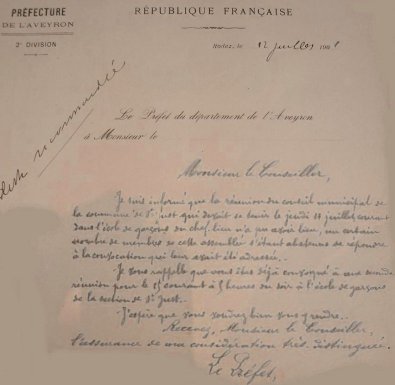 PRÉFECTURE
DE L'AVEYRON
2e DIVISION
RÉPUBLIQUE FRANÇAISE
Rodez, le 12 juillet 190
Lettre recommandée
Le Préfet du département de l'Aveyron
à Monsieur le
Monsieur le Conseiller,
Je suis informé que la réunion du conseil municipal de
la commune de St Just qui devait se tenir le jeudi 11 juillet courant
dans l'école de garçons du chef-lieu n'a pas avoir lieu, un certain
nombre de membres de cette assemblée s'étant abstenus de répondre
à la convocation qui leur avait été adressée.
Je vous rappelle que vous êtes déjà convoqué à une
réunion pour le courant à 5 heures du soir à l'école de garçons
de la section de St Just.
J'espère que vous voudrez bien vous y rendre.
Recevez, Monsieur le Conseiller,
l'assurance de ma considération très distinguée.
Le Préfet,